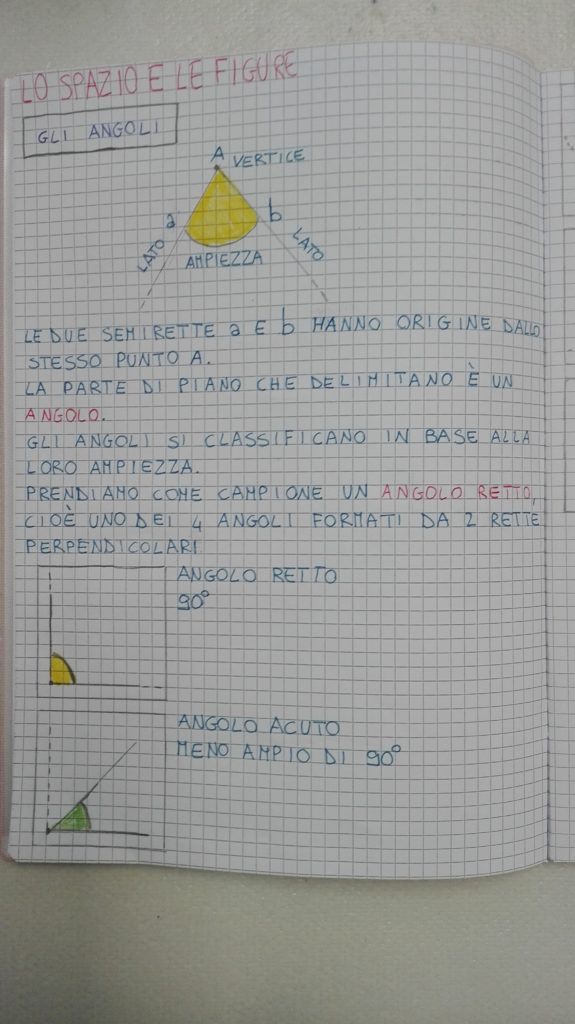 LO SPAZIO E LE FIGURE
GLI ANGOLI
A VERTICE
a b
LATO LATO
AMPIEZZA
LE DUE SEMIRETTE a E b HANNO ORIGINE DALLO
STESSO PUNTO A.
LA PARTE DI PIANO CHE DELIMITANO È UN
ANGOLO.
GLI ANGOLI SI CLASSIFICANO IN BASE ALLA
LORO AMPIEZZA.
PRENDIAMO COME CAMPIONE UN ANGOLO RETTO,
CIOÈ UNO DEI 4 ANGOLI FORMATI DA 2 RETTE
PERPENDICOLARI
ANGOLO RETTO
90°
ANGOLO ACUTO
MENO AMPIO DI 90°